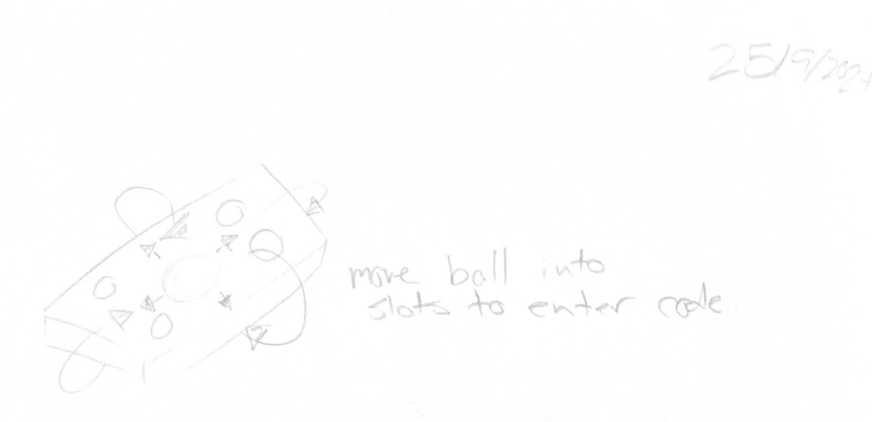 25/9/202
move ball into
slots to enter code.